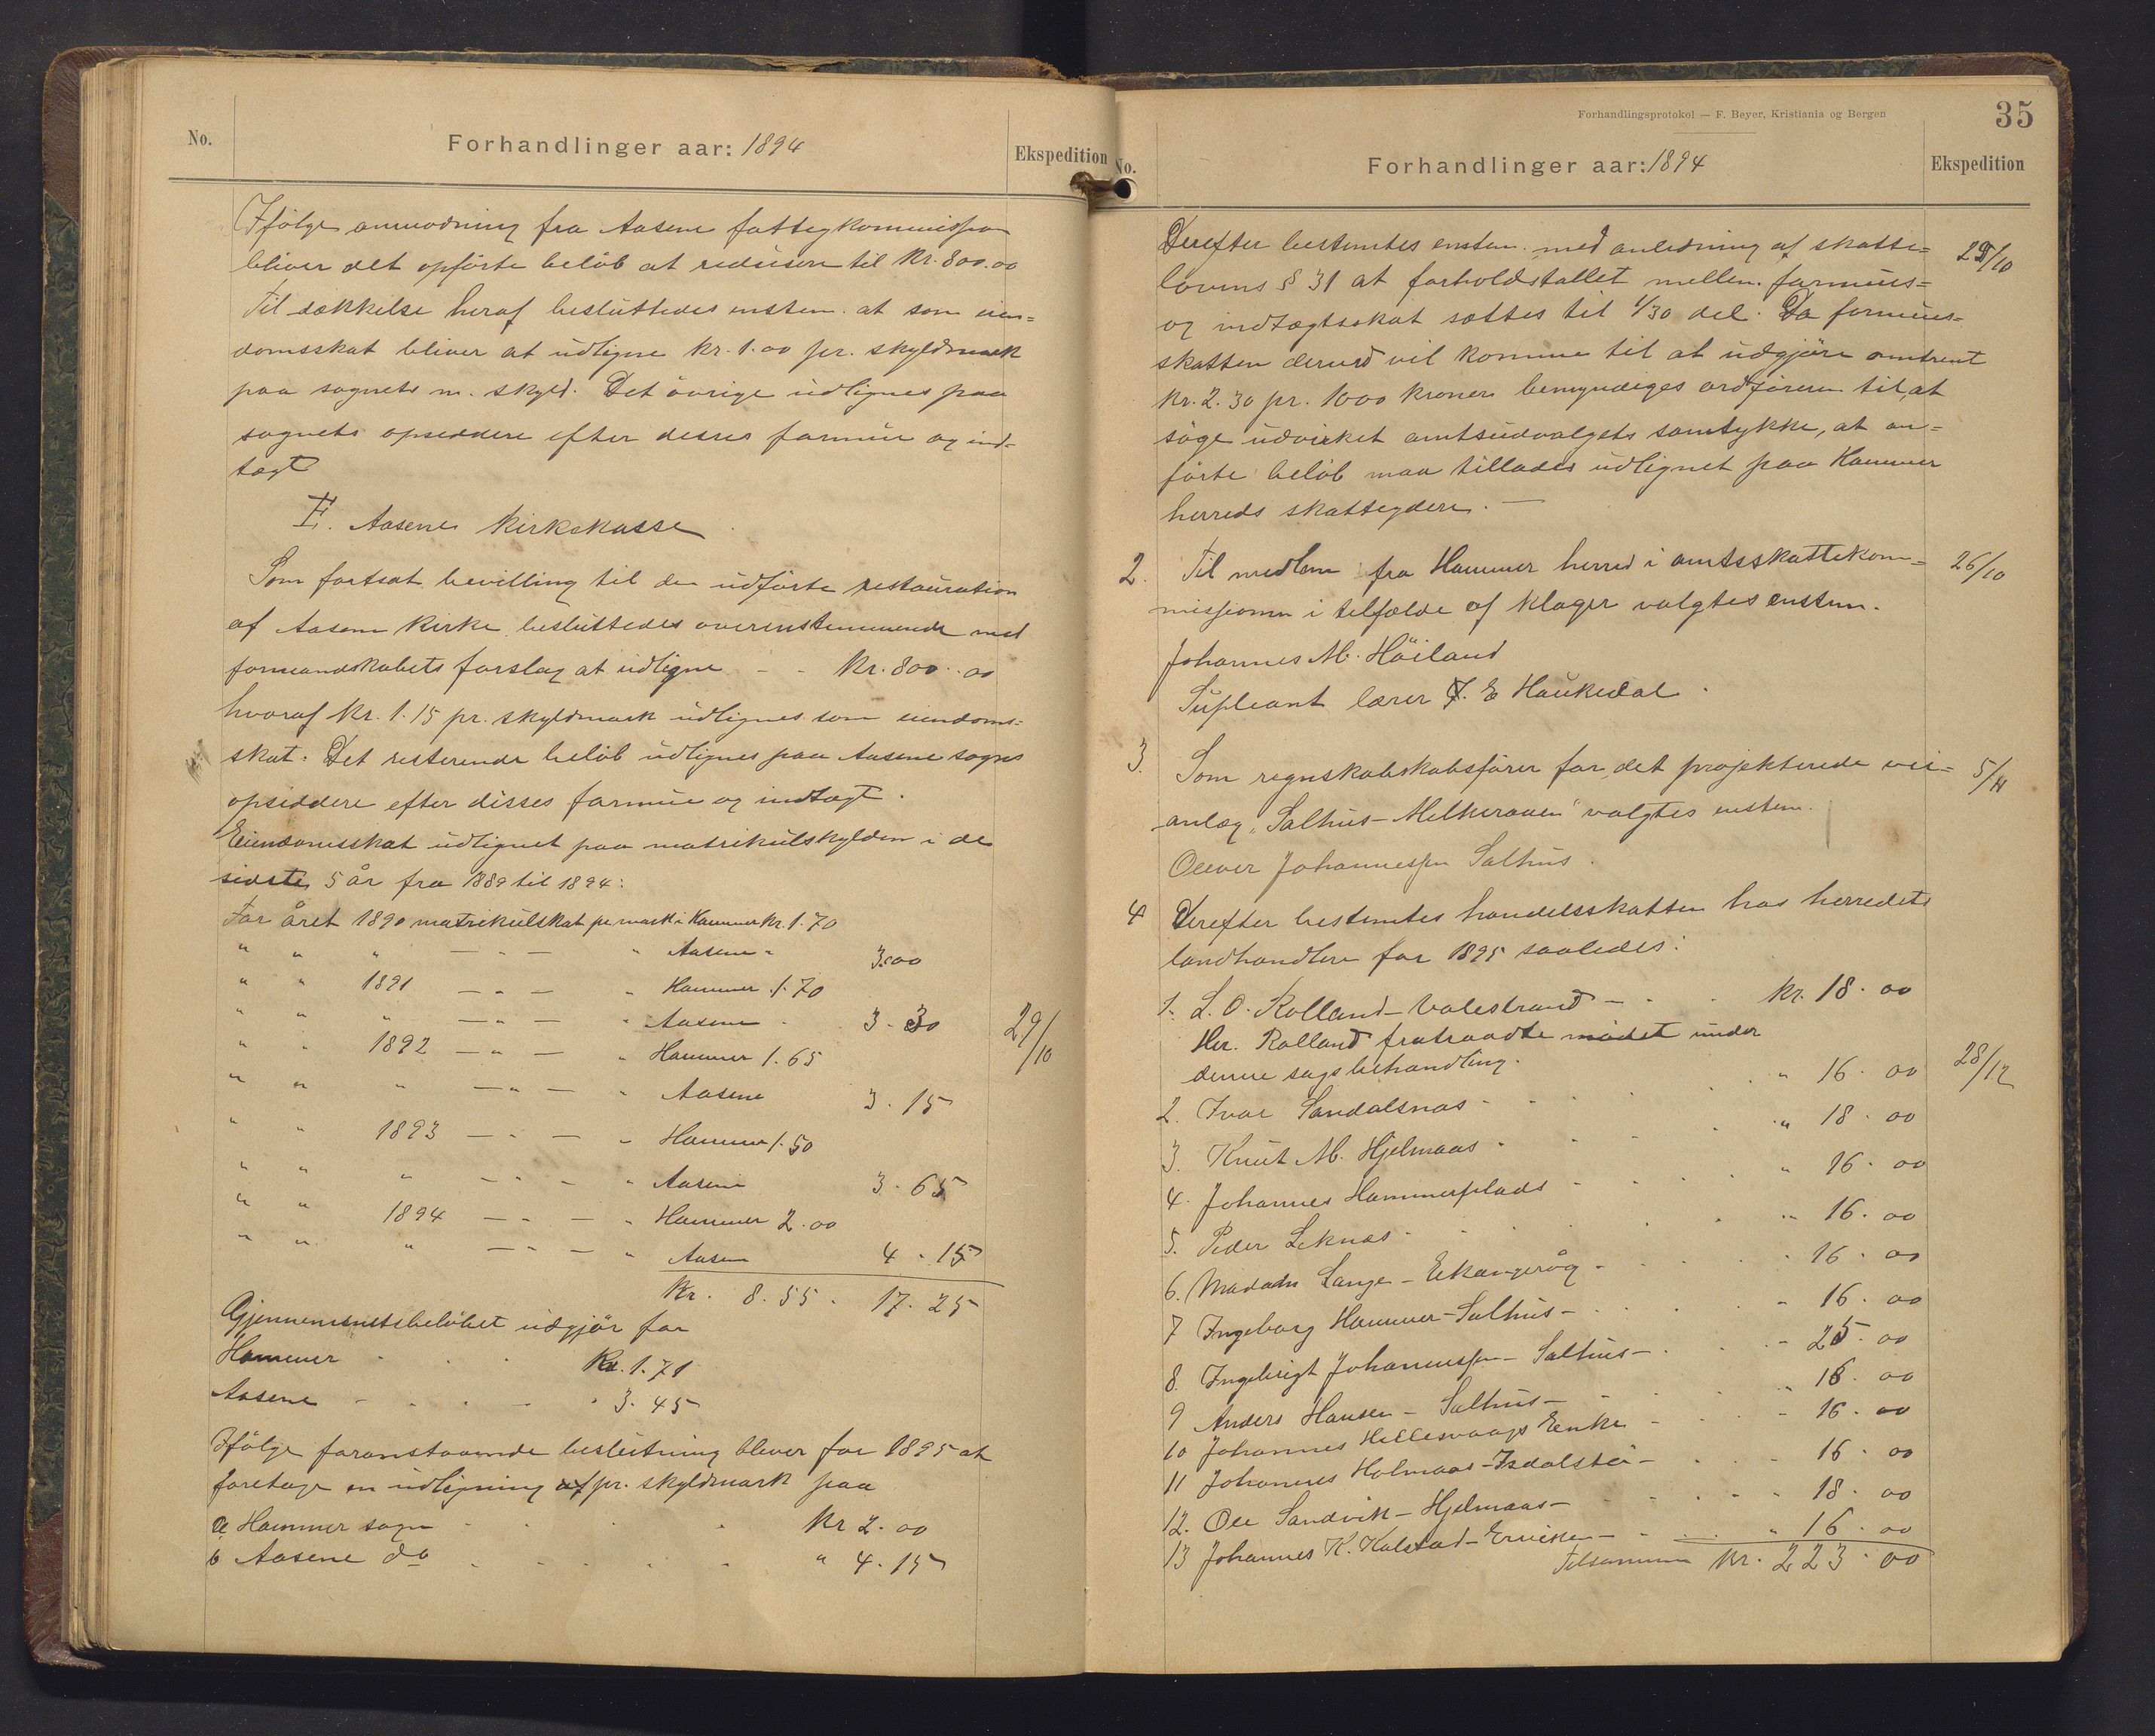 No.
Forhandlinger aar: 1894
Ekspedition
Ifølge anmodning fra Aasene fattigkommission
bliver det opførte beløb at redusere til Kr. 800.00
Til dækkelse heraf besluttedes enstem. at som eien=
domsskat bliver at udligne Kr. 1.00 pr. skyldmark
paa sognets m. skyld. Det øvrige udlignes paa
sognets opsiddere efter desses formue og ind-
tægt
E. Aasene Kirkekasse
Som fortsat bevilling til den udførte restauration
af Aasene Kirke besluttedes overenstemmende med
formandskabets forslag at udligne - - Kr. 800.00
hvoraf Kr. 1.15 pr. skyldmark udlignes som eiendoms=
skat. Det resterende beløb udlignes paa Aasene sogns
opsiddere efter disses formue og indtægt.
Eiendomsskat udlignet paa matrikulskylden i de
sidste 5 år fra 1889 til 1894:
For året 1890 matrikulskat pr mark i Hammer Kr. 1.70
" " " — " — " Aasene " 3.00
" " 1891 — " — " Hammer 1.70
" " " — " — " Aasene 3.30
" " 1892 — " — " Hammer 1.65
29/10
" " " — " — " Aasene 3.15
" " 1893 — " — " Hammer 1.50
" " " — " — " Aasene 3.65
" " 1894 — " — " Hammer 2.00
" " " — " — " Aasene 4.15
Kr. 8.55. 17.25
Gjennemsnitsbeløbet udgjør for
Hammer - - - Kr. 1.71
Aasene - - - - " 3.45
Ifølge foranstaaende beslutning bliver for 1895 at
foretage en udligning af pr. skyldmark paa
a Hammer sogn - - - Kr 2.00
b Aasene do - - - - " 4.15
Forhandlingsprotokol — F. Beyer, Kristiania og Bergen
35
No.
Forhandlinger aar: 1894
Ekspedition
Derefter bestemtes enstem. med anledning af skatte=
29/10
lovens § 31 at forholdstallet mellem formues=
og indtægtsskat sættes til 1/30 del. Da formues=
skatten derved vil komme til at udgjøre omtrent
Kr. 2.30 pr. 1000 Kroner bemyndiges ordføreren til, at
søge udvirket amtsudvalgets samtykke, at an=
førte beløb maa tillades udlignet paa Hammer
herreds skatteydere. —
2. Til medlem fra Hammer herred i amtsskattekom=
26/10
missionen i tilfælde af klager valgtes enstem.
Johannes M. Höiland
Supleant lærer J. E Haukedal.
3. Som regnskabskabsfører for det projekterede vei=
5/11
anlæg "Salhus-Melkeraaen" valgtes enstem.
Oliver Johannessen Salhus.
4 Derefter bestemtes handelsskatten hos herredets
landhandlere for 1895 saaledes:
1. L. O. Rolland-Valestrand — - Kr. 18.00
Hr. Rolland fratraadte mødet under
denne sags behandling.
28/12
2. Ivar Sandalsnæs - - - " 16.00
3. Knut M. Hjelmaas - - - " 18.00
4. Johannes Hammersplads - - - " 16.00
5. Peder Leknæs - - - " 16.00
6. Madam Lange - Eikangervåg - - - 16.00
7 Ingeborg Hammer-Salhus - - - " 16.00
8. Ingebrigt Johannessen - Salhus - - - 25.00
9 Anders Hansen - Salhus - - - " 16.00
10 Johannes Hellesvaags Enke - - - 16.00
11 Johannes Holmaas-Isdalstø - - - 16.00
12. Ole Sandvik - Hjelmaas - - - " 18.00
13 Johannes K. Kolstad - Erviken - - - " 16.00
Tilsammen Kr. 223.00